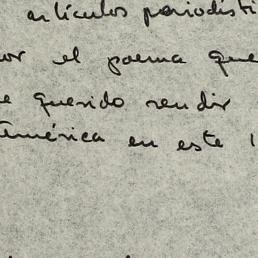 artículos periodísti
or el poema que
e querido rendir
américa en este 1